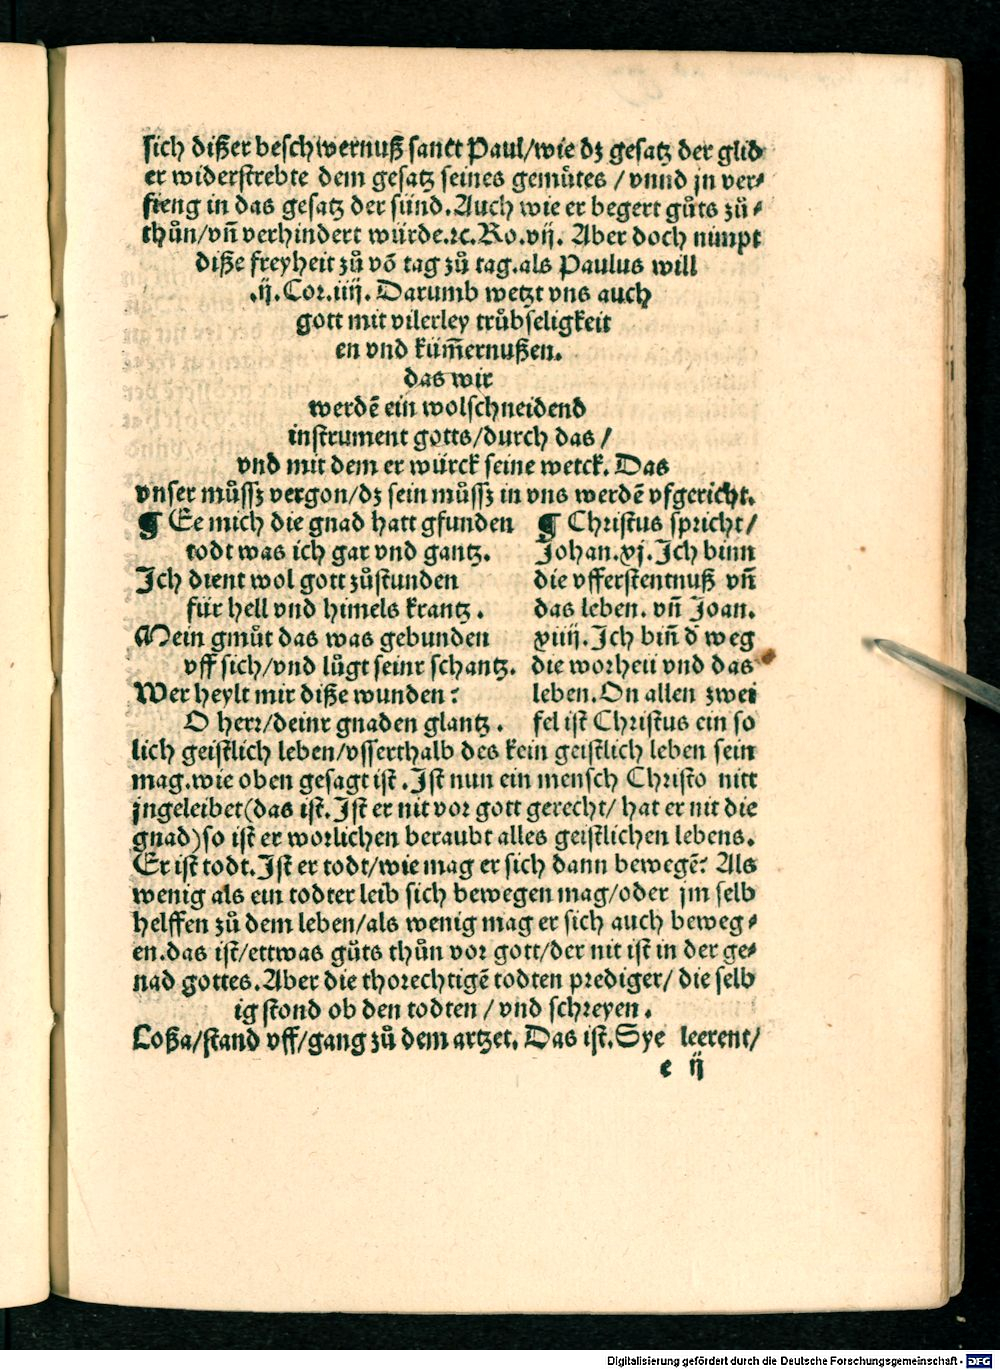 sich dißer beschwernuß sanct Paul/wie dz gesatz der glid
er widerstrebte dem gesatz seines gemůtes / vnnd jn ver⸗
fieng in das gesatz der sünd. Auch wie er begert gůts zů⸗
thůn/vñ verhindert würde.ꝛc. Ro.vij. Aber doch nimpt
diße freyheit zů võ tag zů tag.als Paulus will
.ij.Cor.iiij. Darumb wetzt vns auch
gott mit vilerley trůbseligkeit
en vnd küm̃ernußen.
das wir
werdẽ ein wolschneidend
instrument gotts/durch das /
vnd mit dem er würck seine wetck. Das
vnser můssz vergon/dz sein můssz in vns werdẽ vfgericht.
¶ Ee mich die gnad hatt gfunden
todt was ich gar vnd gantz.
Ich dient wol gott zůstunden
für hell vnd himels krantz .
Mein gmůt das was gebunden
vff sich/vnd lůgt seinr schantz.
Wer heylt mir diße wunden?
O herr/deinr gnaden glantz .
¶ Christus spricht/
Johan.xj. Ich binn
die vfferstentnuß vñ
das leben. vñ Joan.
xiiij. Ich biñ d̃ weg
die worheit vnd das
leben. On allen zwei
fel ist Christus ein so
lich geistlich leben/vsserthalb des kein geistlich leben sein
mag.wie oben gesagt ist . Ist nun ein mensch Christo nitt
jngeleibet(das ist. Ist er nit vor gott gerecht/ hat er nit die
gnad)so ist er worlichen beraubt alles geistlichen lebens.
Er ist todt. Ist er todt/wie mag er sich dann bewegẽ? Als
wenig als ein todter leib sich bewegen mag/oder jm selb
helffen zů dem leben/als wenig mag er sich auch beweg⸗
en.das ist/ettwas gůts thůn vor gott/der nit ist in der ge⸗
nad gottes. Aber die thorechtigẽ todten prediger/ die selb
ig stond ob den todten / vnd schreyen .
Loßa/stand vff/gang zů dem artzet. Das ist. Sye leerent/
e ij
Digitalisierung gefördert durch die Deutsche Forschungsgemeinschaft - DFG